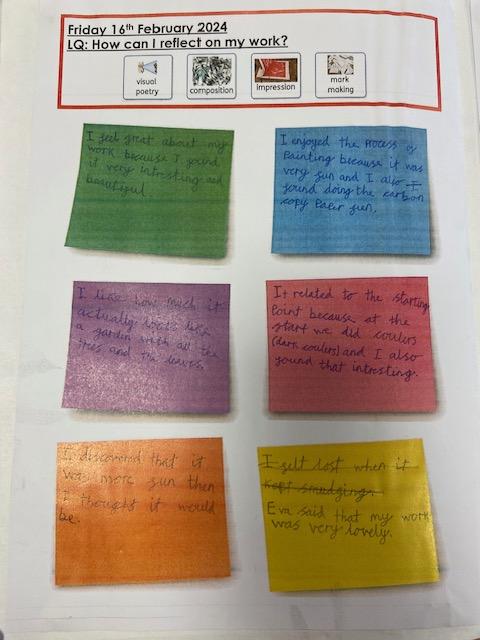 Friday 16th February 2024
LQ: How can I reflect on my work?
visual
poetry
composition
impression
mark
making
I feel great about my
work because I found
it very intresting and
beautiful.
I enjoyed the Process of
Painting because it was
very fun and I also I
found doing the carbon
copy Paper fun.
I like how much it
actually looks like
a garden with all the
trees and the leaves.
It related to the starting
Point because at the
start we did coulers
(dark coulers) and I also
found that intresting.
I discovered that it
was more fun then
I thought it would
be.
I felt lost when it
kept smudging.
Eva said that my work
was very lovely.